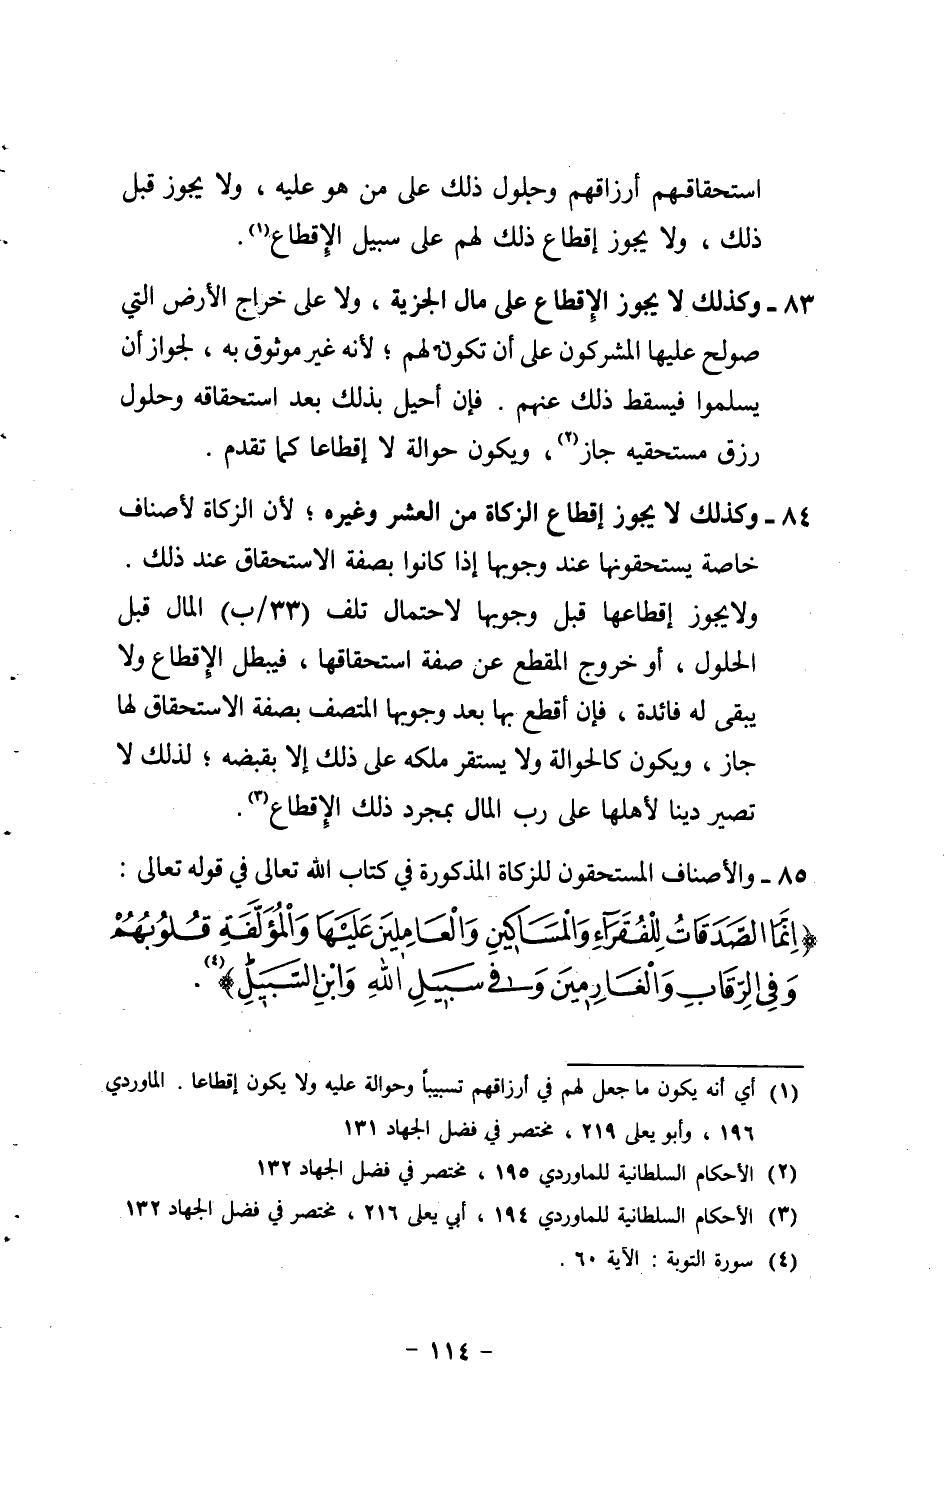 استحقاقهم أرزاقهم وحلول ذلك على من هو عليه ، ولا يجوز قبل
ذلك ، ولا يجوز إقطاع ذلك لهم على سبيل الإقطاع(١).
٨٣ ـ وكذلك لا يجوز الإقطاع على مال الجزية ، ولا على خراج الأرض التي
صولح عليها المشركون على أن تكون لهم ؛ لأنه غير موثوق به ، لجواز أن
يسلموا فيسقط ذلك عنهم . فإن أحيل بذلك بعد استحقاقه وحلول
رزق مستحقيه جاز(٢)، ويكون حوالة لا إقطاعا كما تقدم .
٨٤ ـ وكذلك لا يجوز إقطاع الزكاة من العشر وغيره ؛ لأن الزكاة لأصناف
خاصة يستحقونها عند وجوبها إذا كانوا بصفة الاستحقاق عند ذلك .
ولايجوز إقطاعها قبل وجوبها لاحتمال تلف (٣٣/ب) المال قبل
الحلول ، أو خروج المقطع عن صفة استحقاقها ، فيبطل الإقطاع ولا
يبقى له فائدة ، فإن أقطع بها بعد وجوبها المتصف بصفة الاستحقاق لها
جاز ، ويكون كالحوالة ولا يستقر ملكه على ذلك إلا بقبضه ؛ لذلك لا
تصير دينا لأهلها على رب المال بمجرد ذلك الإقطاع(٣).
٨٥ ـ والأصناف المستحقون للزكاة المذكورة في كتاب الله تعالى في قوله تعالى :
﴿إِنَّمَا الصَّدَقَاتُ لِلْفُقَرَآءِ وَالْمَسَاكِينِ وَالْعَامِلِينَ عَلَيْهَا وَالْمُؤَلَّفَةِ قُلُوبُهُمْ
وَفِي الرِّقَابِ وَالْغَارِمِينَ وَفِي سَبِيلِ اللهِ وَابْنِ السَّبِيلِ﴾(٤).
(١) أي أنه يكون ما جعل لهم في أرزاقهم تسبيباً وحوالة عليه ولا يكون إقطاعا . الماوردي
١٩٦ ، وأبو يعلى ٢١٩ ، مختصر في فضل الجهاد ١٣١
(٢) الأحكام السلطانية للماوردي ١٩٥ ، مختصر في فضل الجهاد ١٣٢
(٣) الأحكام السلطانية للماوردي ١٩٤ ، أبي يعلى ٢١٦ ، مختصر في فضل الجهاد ١٣٢
(٤) سورة التوبة : الآية ٦٠ .
- ١١٤ -